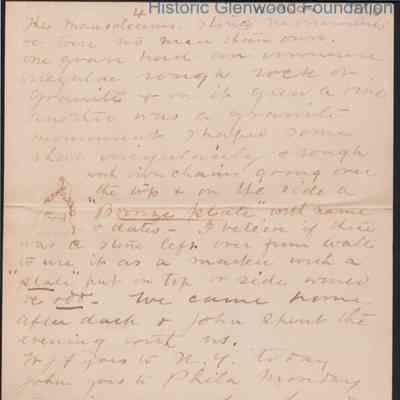 Historic Glenwood Foundation
4
The Mausoleums. Along monuments
& one no man than ours.
one grave had an immense
irregular rough rock or
granite & on it grew a vine
another was a granite
monument shaped some
irregularly & rough
with iron chain going over
the top & on the side a
"Bronze plate" with name
& dates - I believe if there
was a stone left over from wall
to use it as a marker with a
"plate" put on top or side would
be odd. We came home
after dark & John spent the
evening with us.
W.J. goes to N.Y. today
John goes to Phila Monday